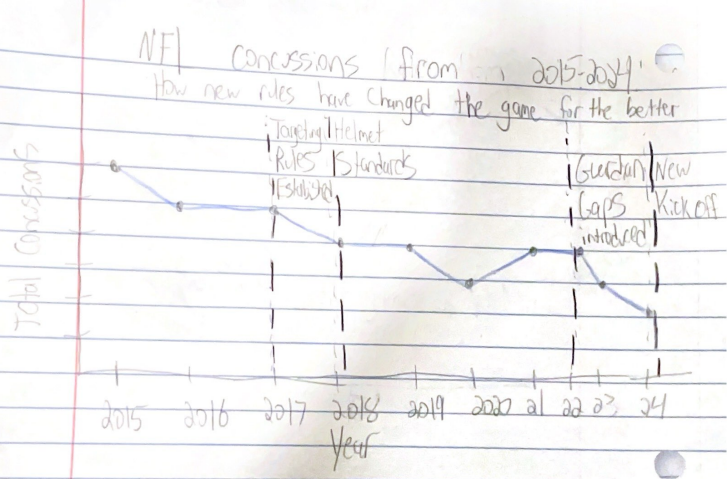 NFL Concussions from 2015-2024
How new rules have changed the game for the better
Targeting
Rules
Established
Helmet
Standards
Guardian
Caps
introduced
New
Kick off
Total Concussions
2015 2016 2017 2018 2019 2020 21 22 23 24
Year